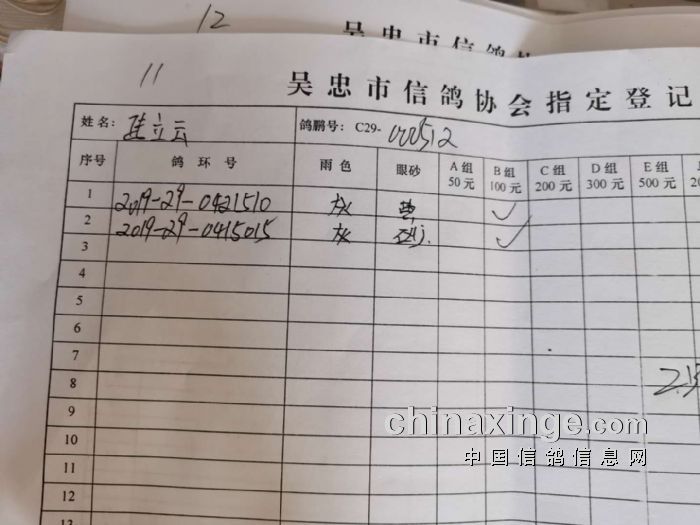 12
吴忠市信鸽协
11
吴忠市信鸽协会指定登记
姓名: 立云 鸽鹏号: C29- 000512
序号 鸽环号 雨色 眼砂 A组 50元 B组 100元 C组 200元 D组 300元 E组 500元
1 2019-29-0421510 灰 黄 ✓
2 2019-29-0415015 灰 砂 ✓
3
4
5
6
7
8
9
10
11
12
13
chinaxinge.com
中国信鸽信息网